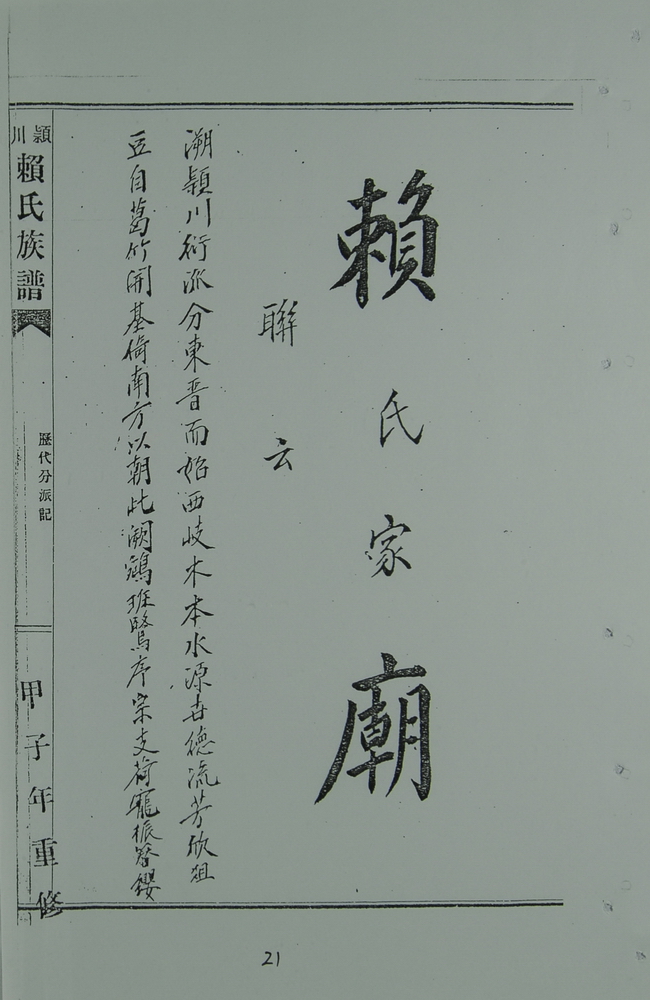 賴氏家廟
聯云
溯頴川衍派分東晋而始西岐木本水源世德流芳欣俎
豆自葛竹開基倚南方以朝此闕鵷班鷖序宗支荷寵振簪纓
頴川
賴氏族譜
歷代分派記
甲子年重修
21